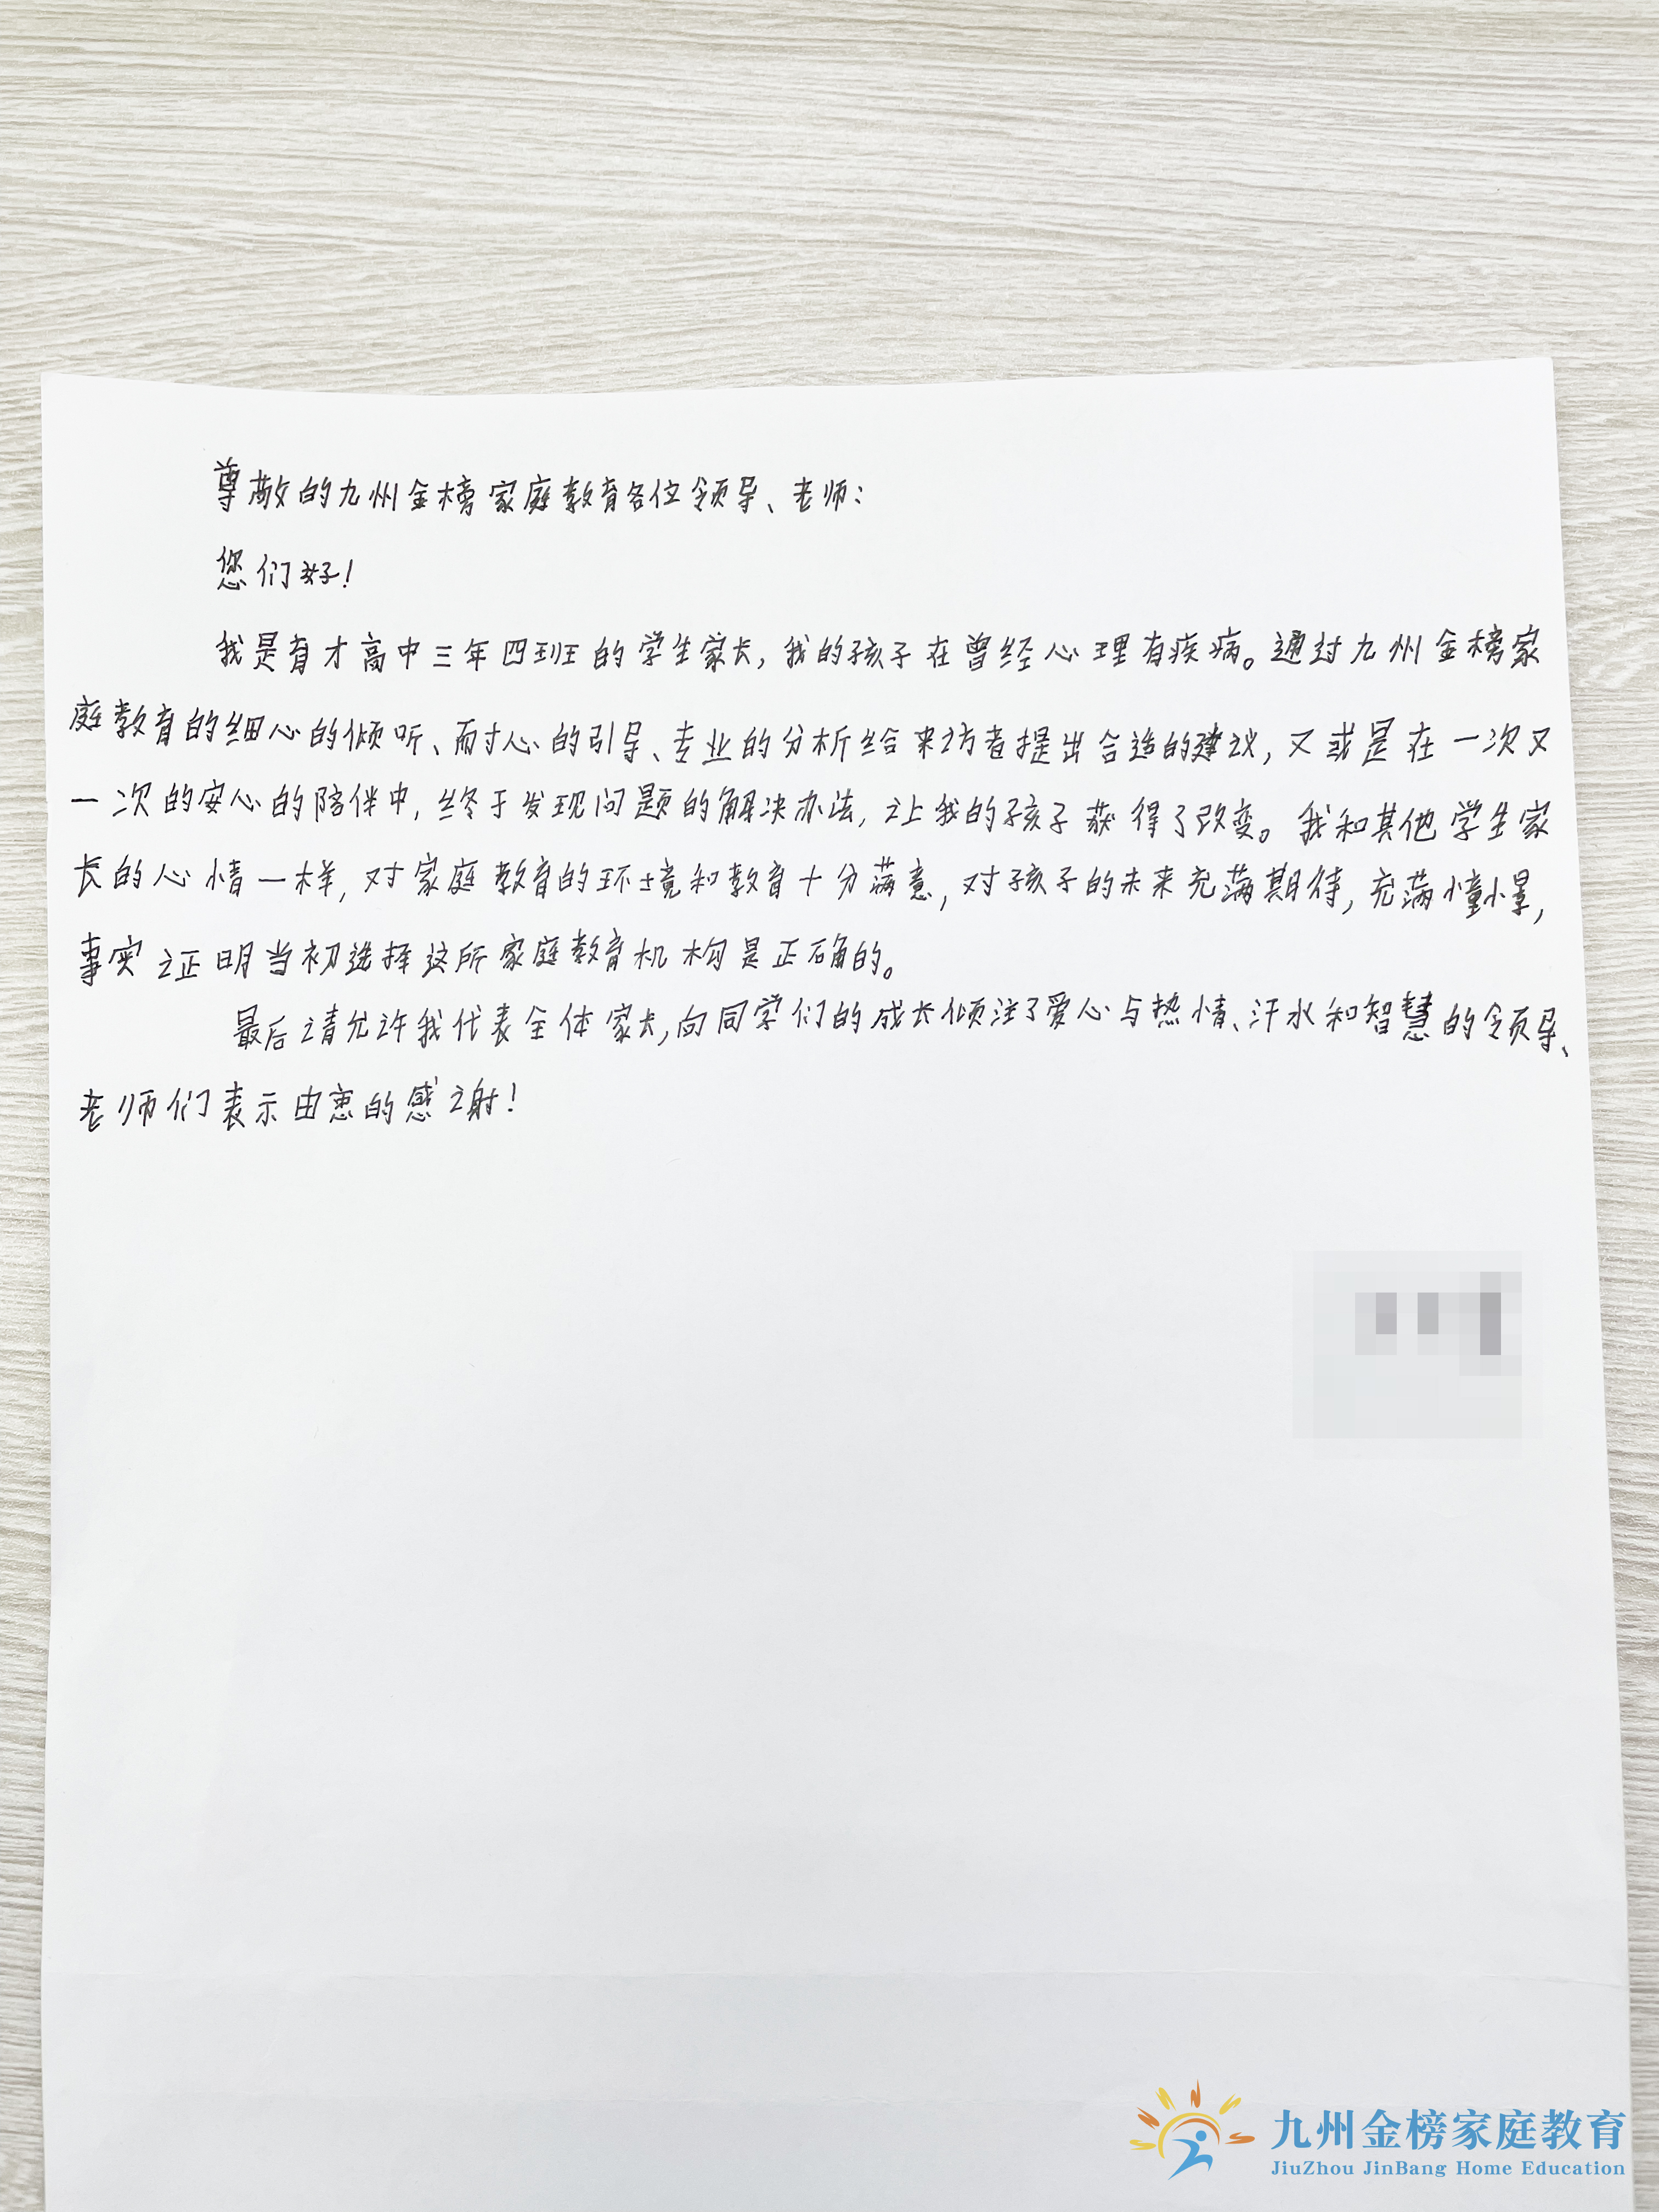 尊敬的九州金榜家庭教育各位领导、老师:
您们好!
我是育才高中三年四班的学生家长,我的孩子在曾经心理有疾病。通过九州金榜家
庭教育的细心的倾听、耐心的引导、专业的分析给来访者提出合适的建议,又或是在一次又
一次的安心的陪伴中,终于发现问题的解决办法,让我的孩子获得了改变。我和其他学生家
长的心情一样,对家庭教育的环境和教育十分满意,对孩子的未来充满期待,充满憧憬,
事实证明当初选择这所家庭教育机构是正确的。
最后请允许我代表全体家长,向同学们的成长倾注了爱心与热情、汗水和智慧的领导、
老师们表示由衷的感谢!
九州金榜家庭教育
JiuZhou JinBang Home Education